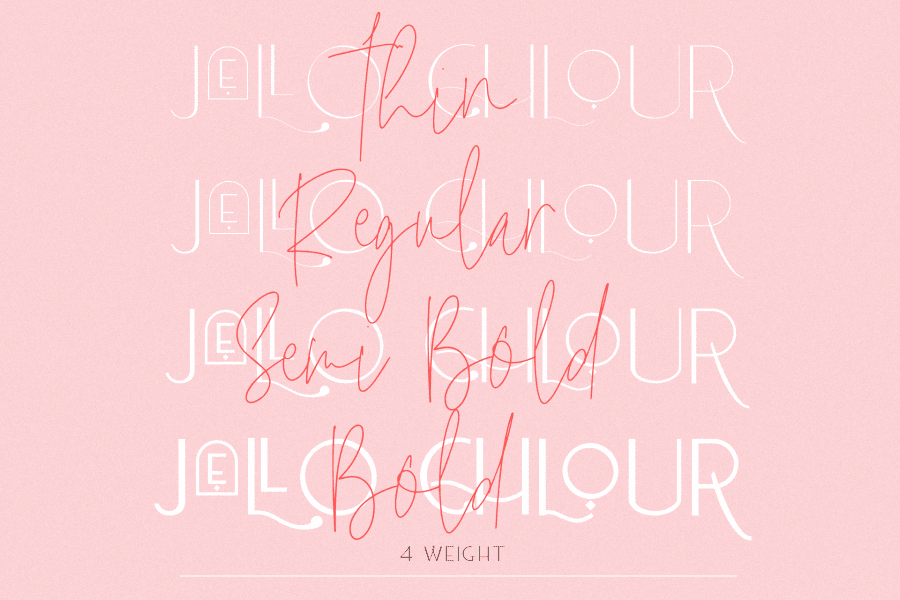 JELLO CHLOUR
Thin
JELLO CHLOUR
Regular
JELLO CHLOUR
Semi Bold
JELLO CHLOUR
Bold
4 WEIGHT